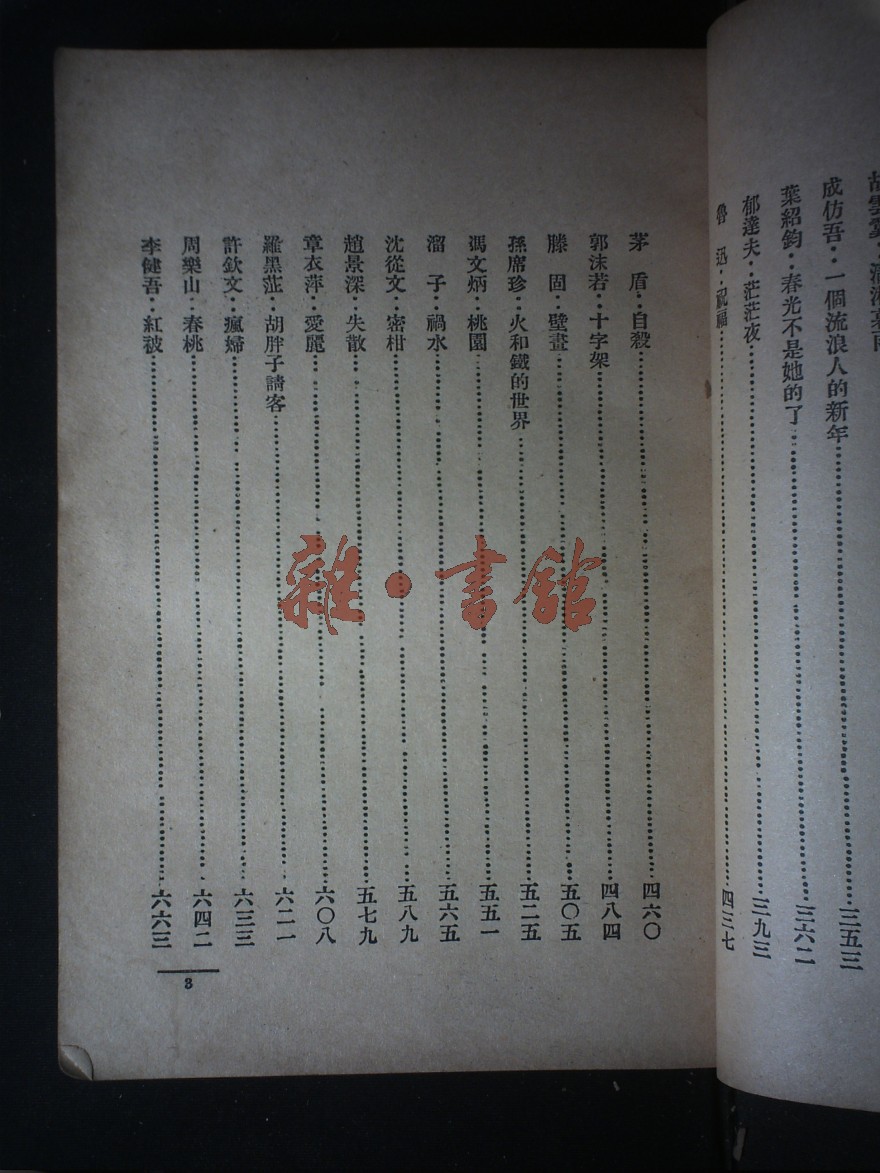 成仿吾‥一個流浪人的新年……三五三
葉紹鈞‥春光不是她的了……三六二
郁達夫‥茫茫夜……三九三
魯 迅‥祝福……四三七
茅 盾‥自殺……四六〇
郭沫若‥十字架……四八四
滕 固‥壁畫……五〇五
孫席珍‥火和鐵的世界……五二五
馮文炳‥桃園……五五一
溜 子‥禍水……五六五
沈從文‥密柑……五八九
趙景深‥失散……五七九
章衣萍‥愛麗……六〇八
羅黑芷‥胡胖子請客……六二一
許欽文‥瘋婦……六三三
周樂山‥春桃……六四二
李健吾‥紅被……六六三
3
雜·書館